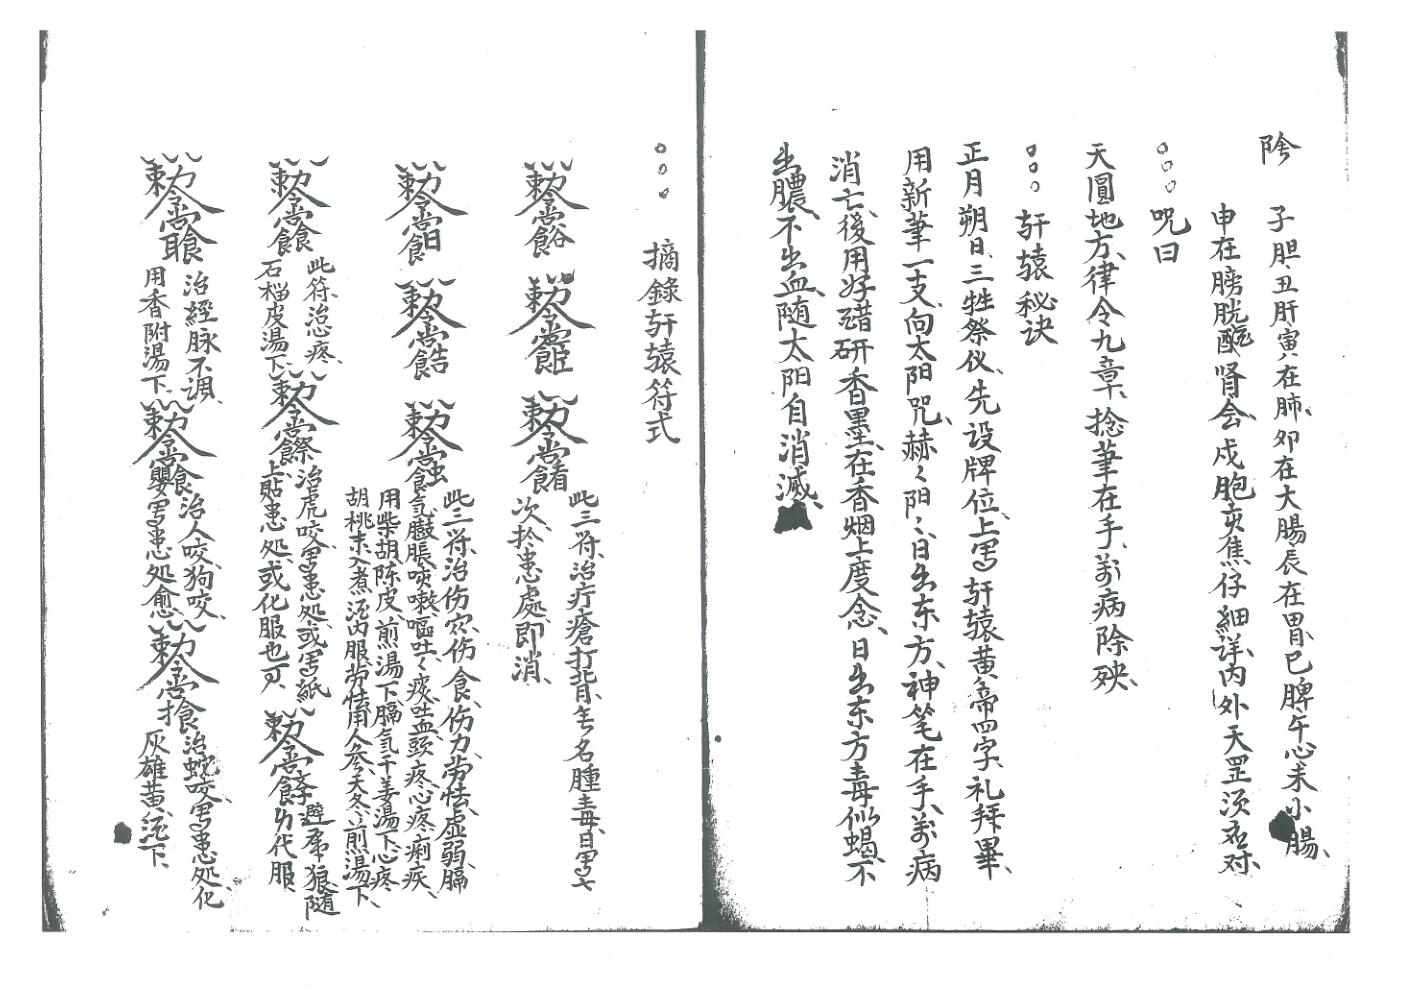 陰
子胆、丑肝寅在肺、卯在大腸辰在胃、巳脾午心未小腸、
申在膀胱酉肾会、戍胞亥焦仔細詳、内外天罡须应对、
咒曰
天圓地方、律令九章、捻筆在手、萬病除殃、
轩辕秘诀
正月朔日、三牲祭仪、先设牌位、上写轩辕黄帝四字、礼拜畢、
用新筆一支、向太阳咒、赫々阳々、日出东方、神笔在手、萬病
消亡、後用好醋研香墨、在香烟上度念、日出东方毒似蝎、不
出膿、不出血、随太阳自消滅、
摘錄轩辕符式
此三符、治疔瘡打背、無名腫毒、日写七
次、於患處、即消、
此三符、治伤寒、伤食、伤力、劳怯、虚弱、膈
気、臌脹、咳嗽、嘔吐、痰、吐血、頭疼、心疼、痢疾、
用柴胡、陈皮、煎湯下、膈気干姜湯下、心疼
胡桃末入煮酒内服、劳怯用人参、天冬、煎湯下、
此符、治心疼、
石榴皮湯下、
治虎咬、写患処、或写紙
上貼患処、或化服也可、
避虎狼、随
身代服
治經脉不調、
用香附湯下、
治人咬、狗咬、
写患処愈、
治蛇咬、写患処、化
灰雄黄、酒下、